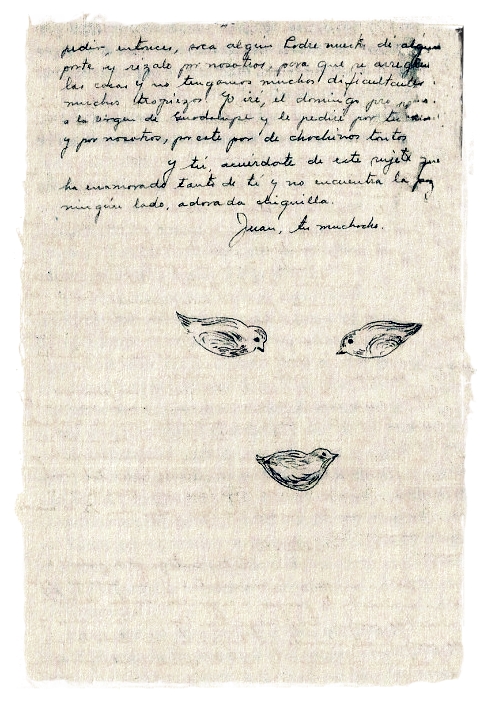 pedir, entonces, saca algún Padre nuestro de alguna
parte y rézale por nosotros, para que se arreglen
las cosas y no tengamos muchas dificultades
muchos tropiezos. Yo iré, el domingo
a la Virgen de Guadalupe y le pediré por ti
y por nosotros, por este par de chochinos tontos
Y tú, acuérdate de este sujeto que
ha enamorado tanto de tí y no encuentra la paz
ningún lado, adorada chiquilla.
Juan, tu muchacho.